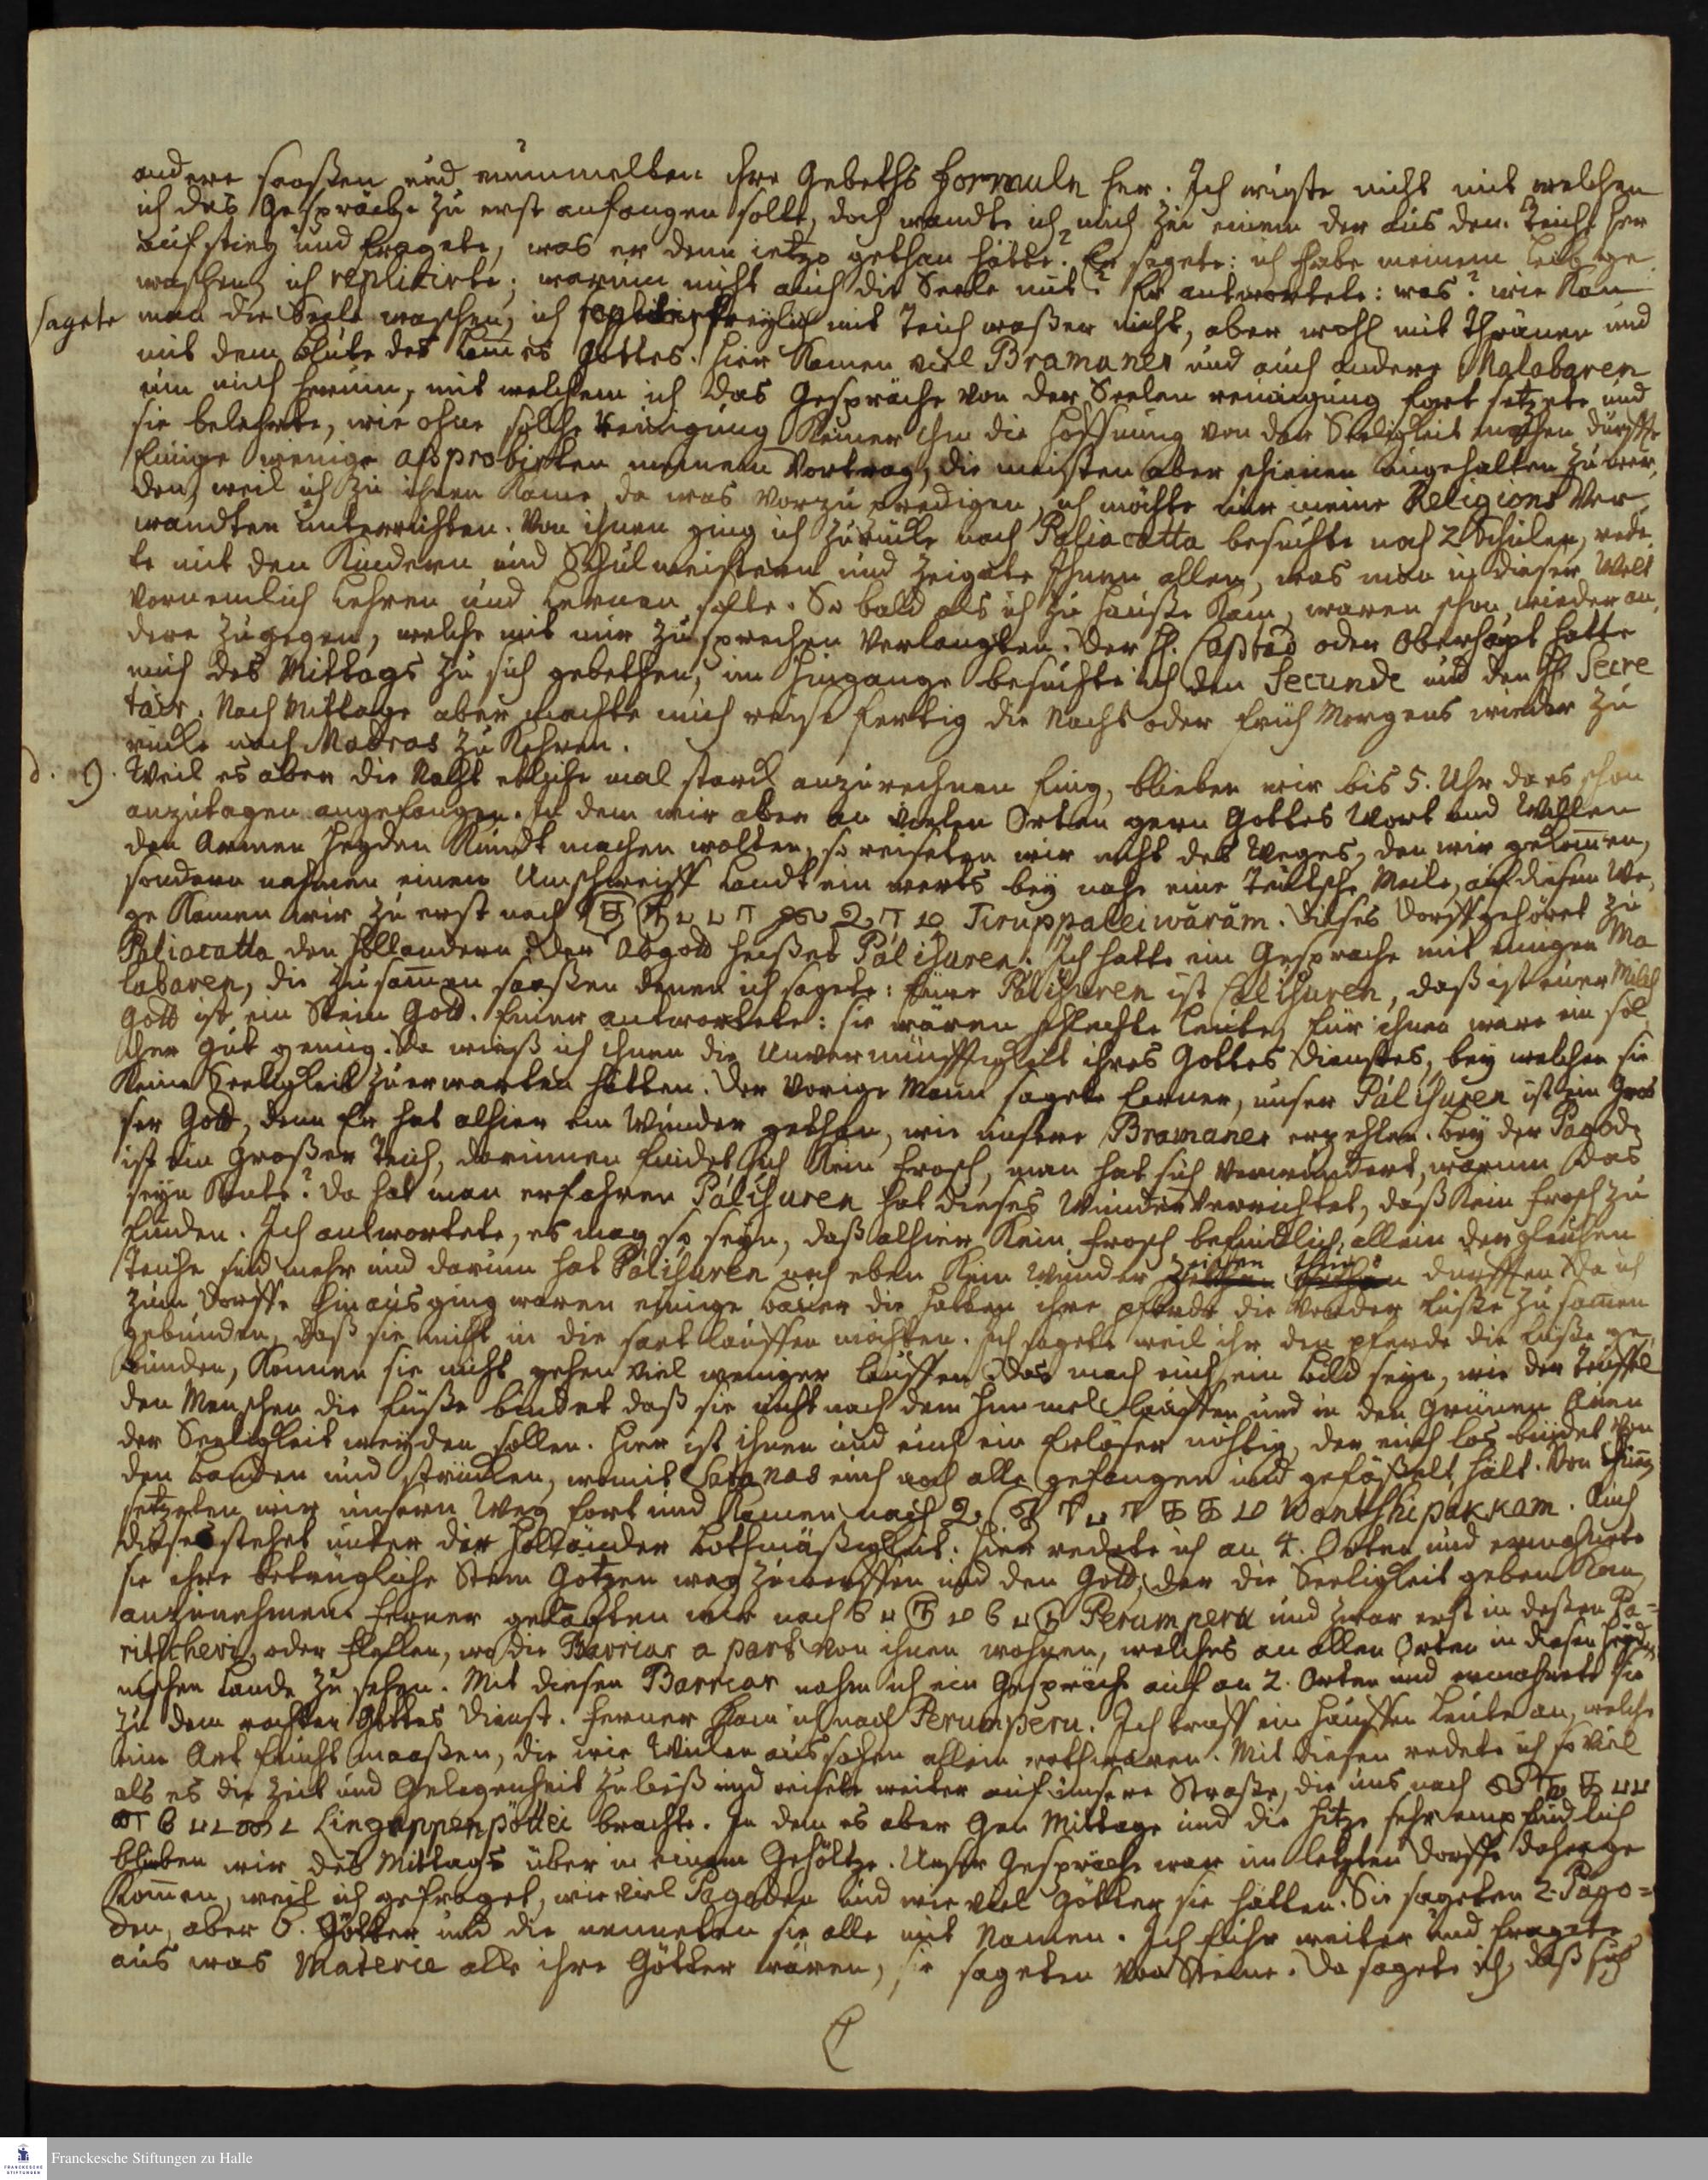 andere saaßen und mummelten ihre Gebeths Formuln her. Ich wuste nicht mit welchen
ich das Gespräche zu erst anfangen sollte, doch wandte ich mich zu einem der aus dem Teiche her
auf stieg und fragete, was er denn ietzo gethan hätte? Er sagete: ich habe meinem Leib ge
waschen, ich replicirte: warum nicht auch die Seele mit? Er antwortete: was? wie kan
sagete man die Seele waschen, ich freylich mit Teich waßer nicht, aber wohl mit Thränen und
mit dem Blute des Lam̅es Gottes. Hier kamen viel Bramanes und auch andere Malabaren
um mich herum, mit welchem ich das Gespräche von der Seelen reinigung fort setzete und
sie belehrte, wie ohne solche Reinigung keiner ihm die Hoffnung von der Seeligkeit machen dürffte
Einige wenige approbirten meinen Vortrag, die meisten aber schienen ungehalten zu wer
den, weil ich zu ihnen käme, da was vorzu predigen, ich möchte nur meine Religions Ver
wandten unterrichten. Von ihnen ging ich zurücke nach Paliacatta besuchte noch 2 Schulen, rede
te mit den Kindern und Schulmeistern und zeigete Ihnen allen, was man in dieser Welt
vornemlich Lehren und Lernen solte. So bald als ich zu Hauße kam, waren schon wieder an
dere zugegen, welche mit mir zu sprechen verlangten. Der H. oder Oberhaupt hatte
mich des Mittags zu sich gebethen, im Hingange besuchte ich den Secunde und den H. Secre
tair. Nach Mittage aber machte mich reyse fertig die Nacht oder früh Morgens wieder zu
rücke nach Madras zu kehren.
d. 9. Weil es aber die Nacht etliche mal starck anzurechnen fing, blieben wir bis 5. Uhr da es schon
anzutagen angefangen. In dem wir aber an vielen Orten gern Gottes Wort und Willen
den Armen Heyden Kundt machen wolten, so reiseten wir nicht des Weges, den wir gekom̅en,
sondern nahmen einen Umschweiff Landt ein werts bey nahe eine Teutsche Meile, auf diesem We
ge kamen wir zu erst nach Tiruppaleiwaräm. Dieses Dorff gehöret zu
Paliacatta den Holländern. Der Abgott heißet Páliſuren. Ich hatte ein Gespräche mit einigen Ma
labaren, die zusam̅en saaßen denen ich sagete: Eure Páliſuren ist Calliſuren, daß ist eurer Milch
Gott ist ein Stein Gott. Einer antwortete: sie wären schlechte Leute, für ihnen ware ein sol
cher gut genug. Da wieß ich ihnen die Unvernünfftigkeit ihres Gottes dienstes, bey welchen sie
keine Seeligkeit zu erwarten hätten. Der Vorige Mann sagete ferner, unser Páliſuren ist ein gros
ser Gott, denn Er hat alhier ein Wunder gethan, wie unsere Bramanes erzehlen. Bey der Pagode
ist ein großer Teich, darinnen findet sich kein Frosch, man hat sich verwundert, warum das
seyn könte? Da hat man erfahren Páliſuren hat dieses Wunder verrichtet, daß kein Frosch zu
finden. Ich antwortete, es mag so seyn, daß alhier kein Frosch befindlich, allein dergleichen
Teiche sind mehr und darum hat Páliſuren noch eben kein Wunder thun dürffen. Da ich
zum Dorffe hinaus ging waren einige Bauer die hatten ihre Pferde die vorder füße zusam̅en
gebunden, daß sie nicht in die saat lauffen möchten. Ich sagete weil ihr den Pferde die füße ge
bunden, können sie nicht gehen viel weniger lauffen. Das mach euch ein Bild seyn, wie der Teuffel
den Menschen die füße bindet daß sie nicht nach dem Himmel lauffen und in den grünen Auen
der Seeligkeit weyden sollen. Hier ist ihnen und euch ein Erlöser nöhtig, der euch los bindet von
den Banden und stricken, womit Satanas euch noch alle gefangen und gefäßelt hält. Von
setzeten wir unsern Weg fort und kamen nach Wantshipakkam. Auch
dieses stehet unter der Holländer Bothmäßigkeit. Hier redete ich an 4. Orten und ermahnete
sie ihre betrügliche Stein Götzen weg zuwerffen und den Gott, der die Seeligkeit geben kan,
anzunehmen. Ferner gelangten wir nach Perumperu und zwar erst in deßen Pa=
ritscheri, oder flecken, wo die Barriar a part von ihnen wohnen, welches an allen Orten in diesen Heyd
nischen Lande zu sehen. Mit diesen Barriar nahm ich ein Gespräch auf an 2. Orten und ermahnete sie
zu dem rechten Gottes Dienst. Ferner kam ich nach Perumperu. Ich traff ein Hauffen Leute an, welche
eine Art Frucht maaßen, die wie Wicken aussahen allein roth waren. Mit diesen redete ich so viel
als es die Zeit und Gelegenheit zuließ und reisete weiter auf unsere Straße, die uns nach
Lingappenpöttei brachte. In dem es aber Gen Mittage und die Hitze sehr empfindlich
blieben wir des Mittags über in einem Gehöltze. Unser Gespräche war im letzten Dorffe daher ge
kom̅en, weil ich gefraget, wie viel Pagoden und wie viel Götter sie hätten. Sie sageten 2. Pago=
den, aber 6. Götter und die nenneten sie alle mit Namen. Ich fuhr weiter und fragete
aus was Materie alle ihre Götter wären, sie sageten von Steine. Da sagete ich, daß sich
Franckesche Stiftungen zu Halle